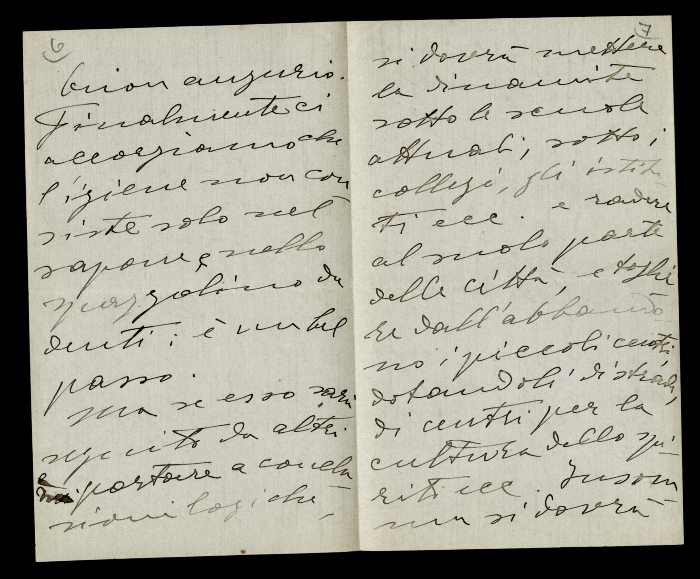 6
buon augurio.
Finalmente ci
accorgiamo che
l'igiene non con
siste solo nel
sapone e nello
spazzolino da
denti: è un bel
passo.
Ma se esso sarà
seguito da altri
portare a conclu
sioni logiche,
7
si dovrà mettere
la dinamite
sotto le scuole
attuali, sotto i
collegi, gli istitu
ti ecc. e radere
al suolo parte
delle città, e toglie
re dall'abbando
no i piccoli centri
dotandoli di strade,
di centri per la
cultura dello spi
rito ecc. Insom
ma si dovrà